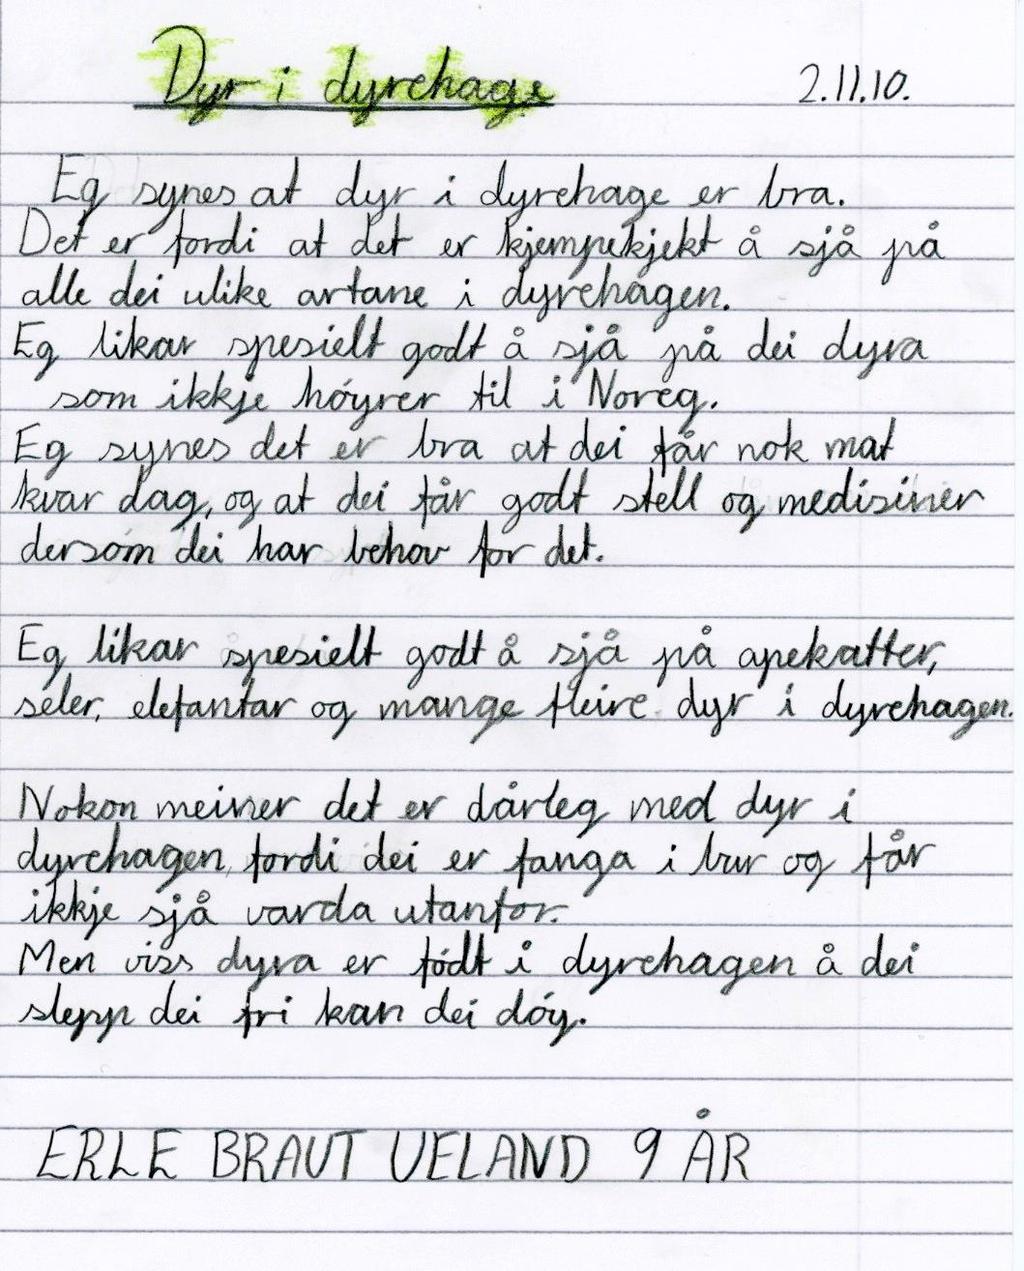 Dyr i dyrehage 2.11.10.
Eg synes at dyr i dyrehage er bra.
Det er fordi at det er kjempekjekt å sjå på
alle dei ulike artane i dyrehagen.
Eg likar spesielt godt å sjå på dei dyra
som ikkje höyrer til i Noreg.
Eg synes det er bra at dei får nok mat
kvar dag, og at dei får godt stell og medisiner
dersom dei har behov for det.
Eg likar spesielt godt å sjå på apekatter,
seler, elefantar og mange fleire dyr i dyrehagen.
Nokon meiner det er dårleg med dyr i
dyrehagen, fordi dei er fanga i bur og får
ikkje sjå varda utanfor.
Men viss dyra er födt i dyrehagen å dei
slepp dei fri kan dei döy.
ERLE BRAUT UELAND 9 ÅR